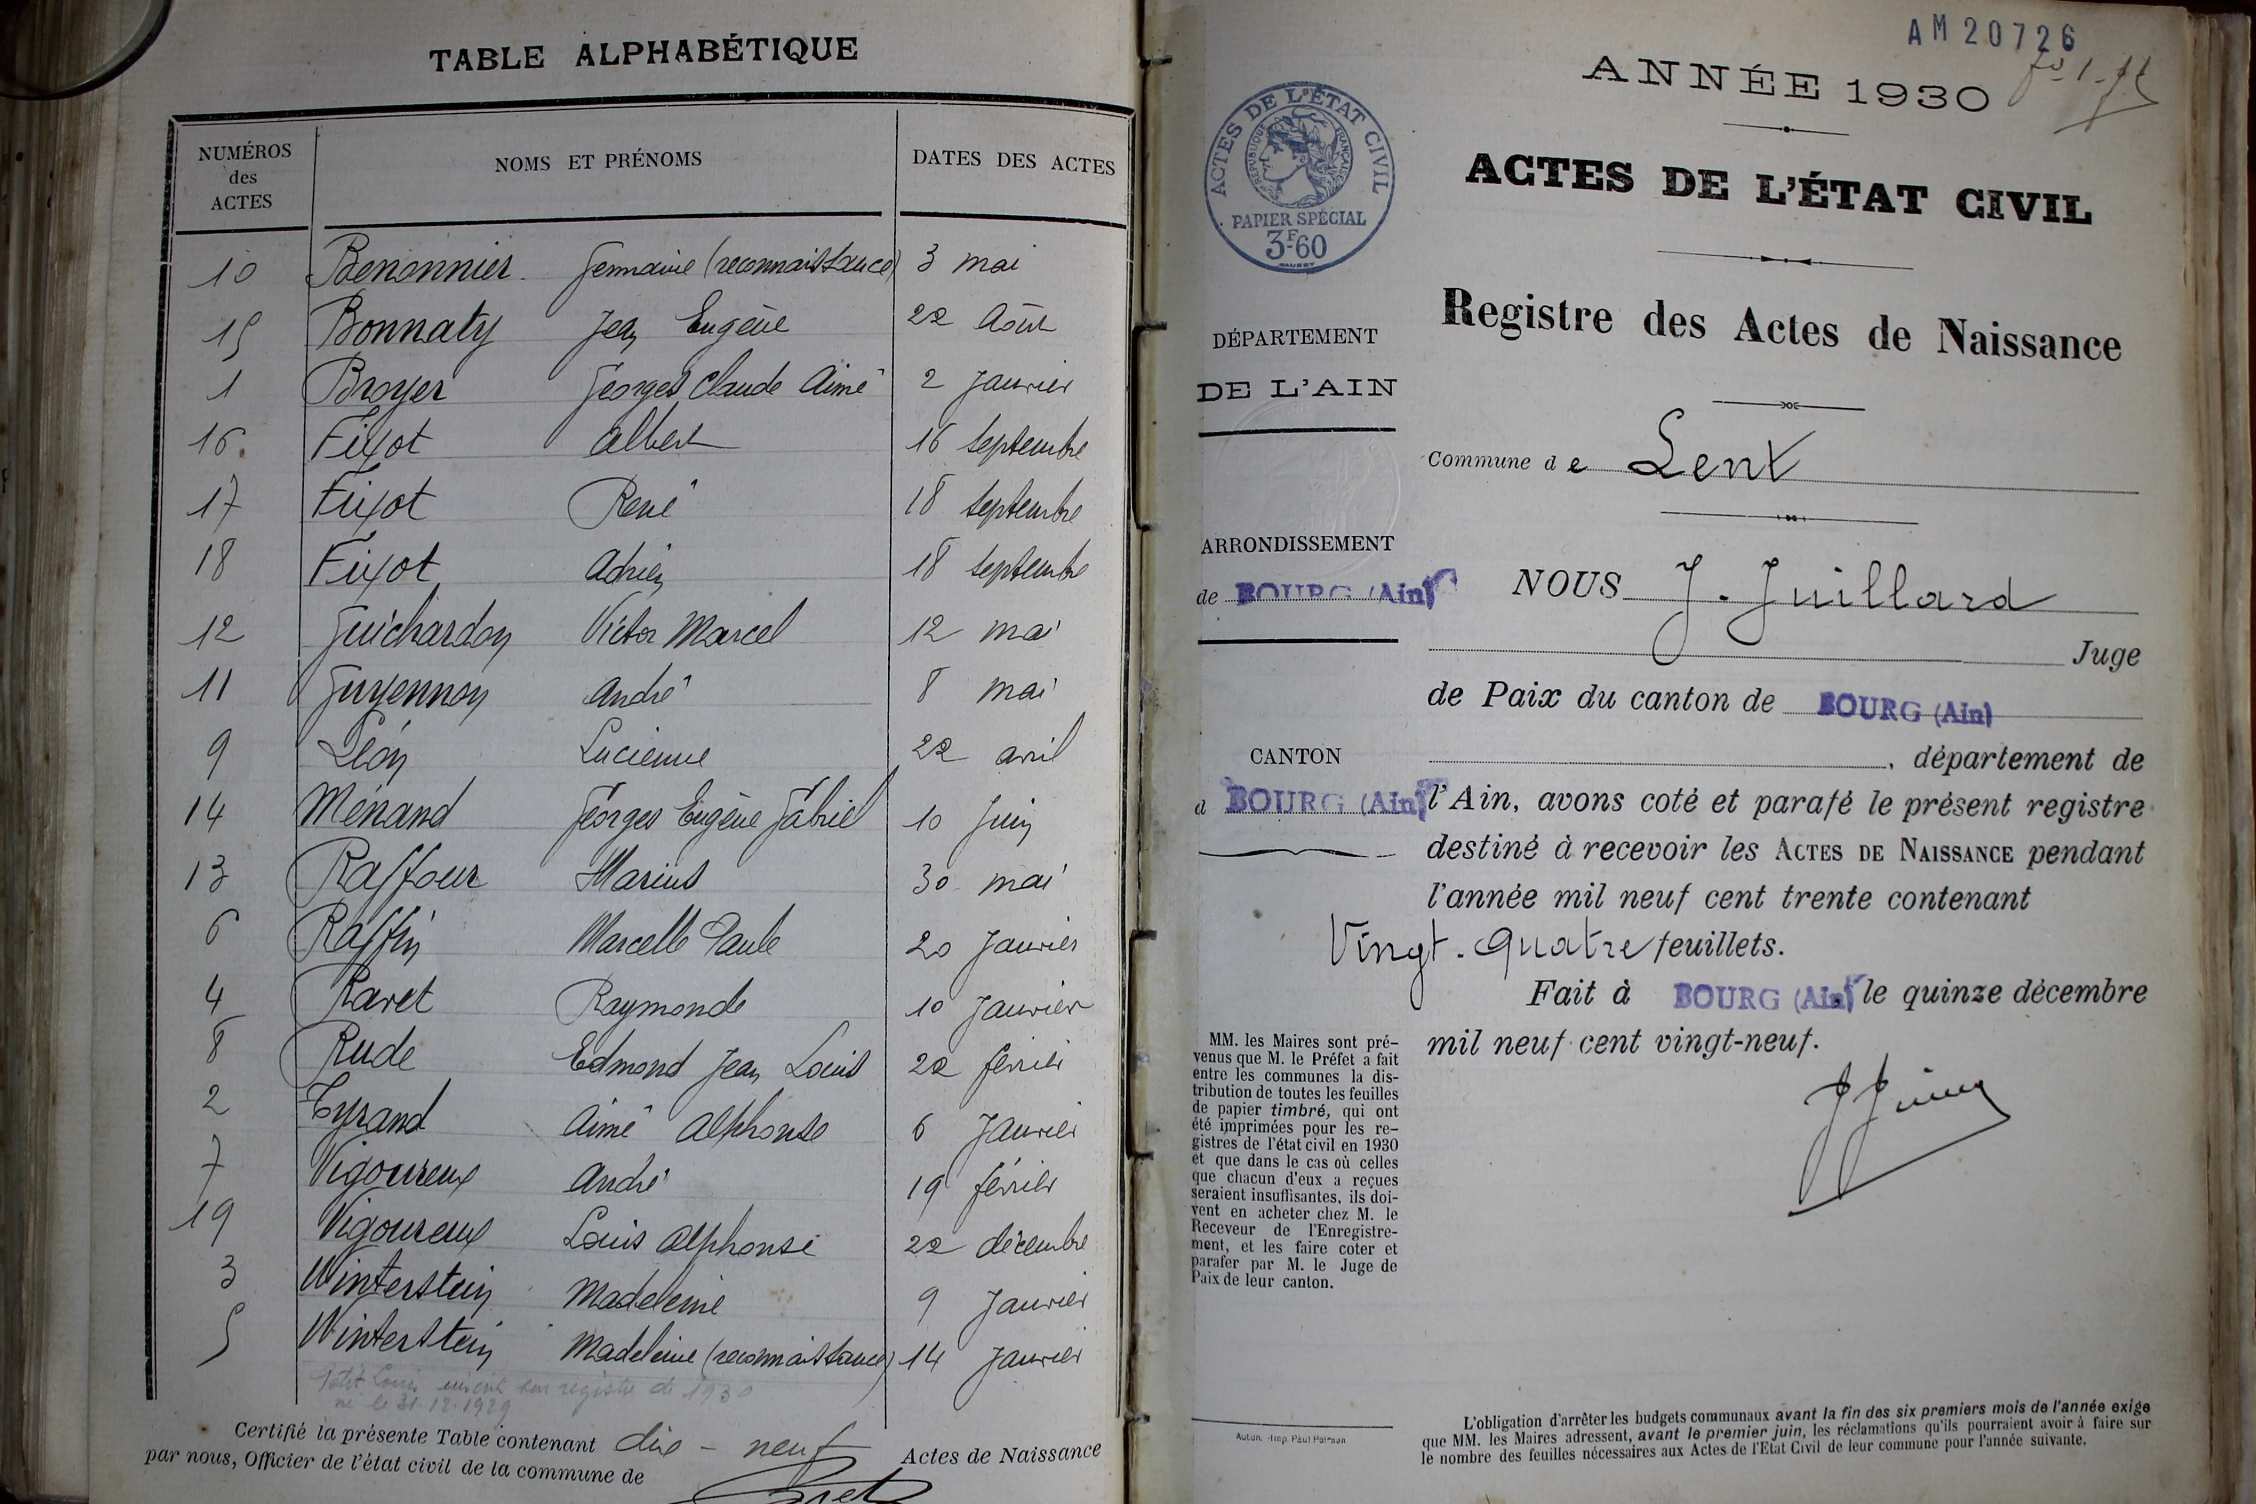 TABLE ALPHABÉTIQUE
NUMÉROS des ACTES NOMS ET PRÉNOMS DATES DES ACTES
10 Benonnier Germaine (reconnaissance) 3 mai
15 Bonnaty Jean Eugène 22 Août
1 Broyer Georges Claude Aimé 2 Janvier
16. Fixot Albert 16 Septembre
17 Fixot René 18 Septembre
18 Fixot Adrien 18 Septembre
12 Guichardon Victor Marcel 12 mai
11 Guyennon André 8 mai
9 Léon Lucienne 22 avril
14 Ménand Georges Eugène Gabriel 10 Juin
13 Raffour Marius 30 mai
6 Raffin Marcelle Paule 20 Janvier
4 Ravet Raymonde 10 Janvier
8 Rude Edmond Jean Louis 22 février
2 Tyrand Aimé Alphonse 6 Janvier
7 Vigoureux André 19 février
19 Vigoureux Louis Alphonse 22 décembre
3 Winterstein Madeleine 9 Janvier
5 Winterstein Madeleine (reconnaissance) 14 Janvier
Louis sur registre de 1930
né le 31-12-1929
Certifié la présente Table contenant dix-neuf Actes de Naissance
par nous, Officier de l'état civil de la commune de
AM 20726
ANNÉE 1930
ACTES DE L'ÉTAT CIVIL
RÉPUBLIQUE FRANÇAISE
PAPIER SPÉCIAL
3F-60
ACTES DE L'ÉTAT CIVIL
Registre des Actes de Naissance
DÉPARTEMENT
DE L'AIN
Commune de Lent
ARRONDISSEMENT
de BOURG (Ain)
NOUS J. Juillard
Juge
de Paix du canton de BOURG (Ain)
CANTON
d BOURG (Ain)
, département de
l'Ain, avons coté et parafé le présent registre
destiné à recevoir les ACTES DE NAISSANCE pendant
l'année mil neuf cent trente contenant
Vingt-quatre feuillets.
Fait à BOURG (Ain) le quinze décembre
mil neuf cent vingt-neuf.
MM. les Maires sont pré-
venus que M. le Préfet a fait
entre les communes la dis-
tribution de toutes les feuilles
de papier timbré, qui ont
été imprimées pour les re-
gistres de l'état civil en 1930
et que dans le cas où celles
que chacun d'eux a reçues
seraient insuffisantes, ils doi-
vent en acheter chez M. le
Receveur de l'Enregistre-
ment, et les faire coter et
parafer par M. le Juge de
Paix de leur canton.
Autun. - Imp. Paul
L'obligation d'arrêter les budgets communaux avant la fin des six premiers mois de l'année exige
que MM. les Maires adressent, avant le premier juin, les réclamations qu'ils pourraient avoir à faire sur
le nombre des feuilles nécessaires aux Actes de l'Etat Civil de leur commune pour l'année suivante.